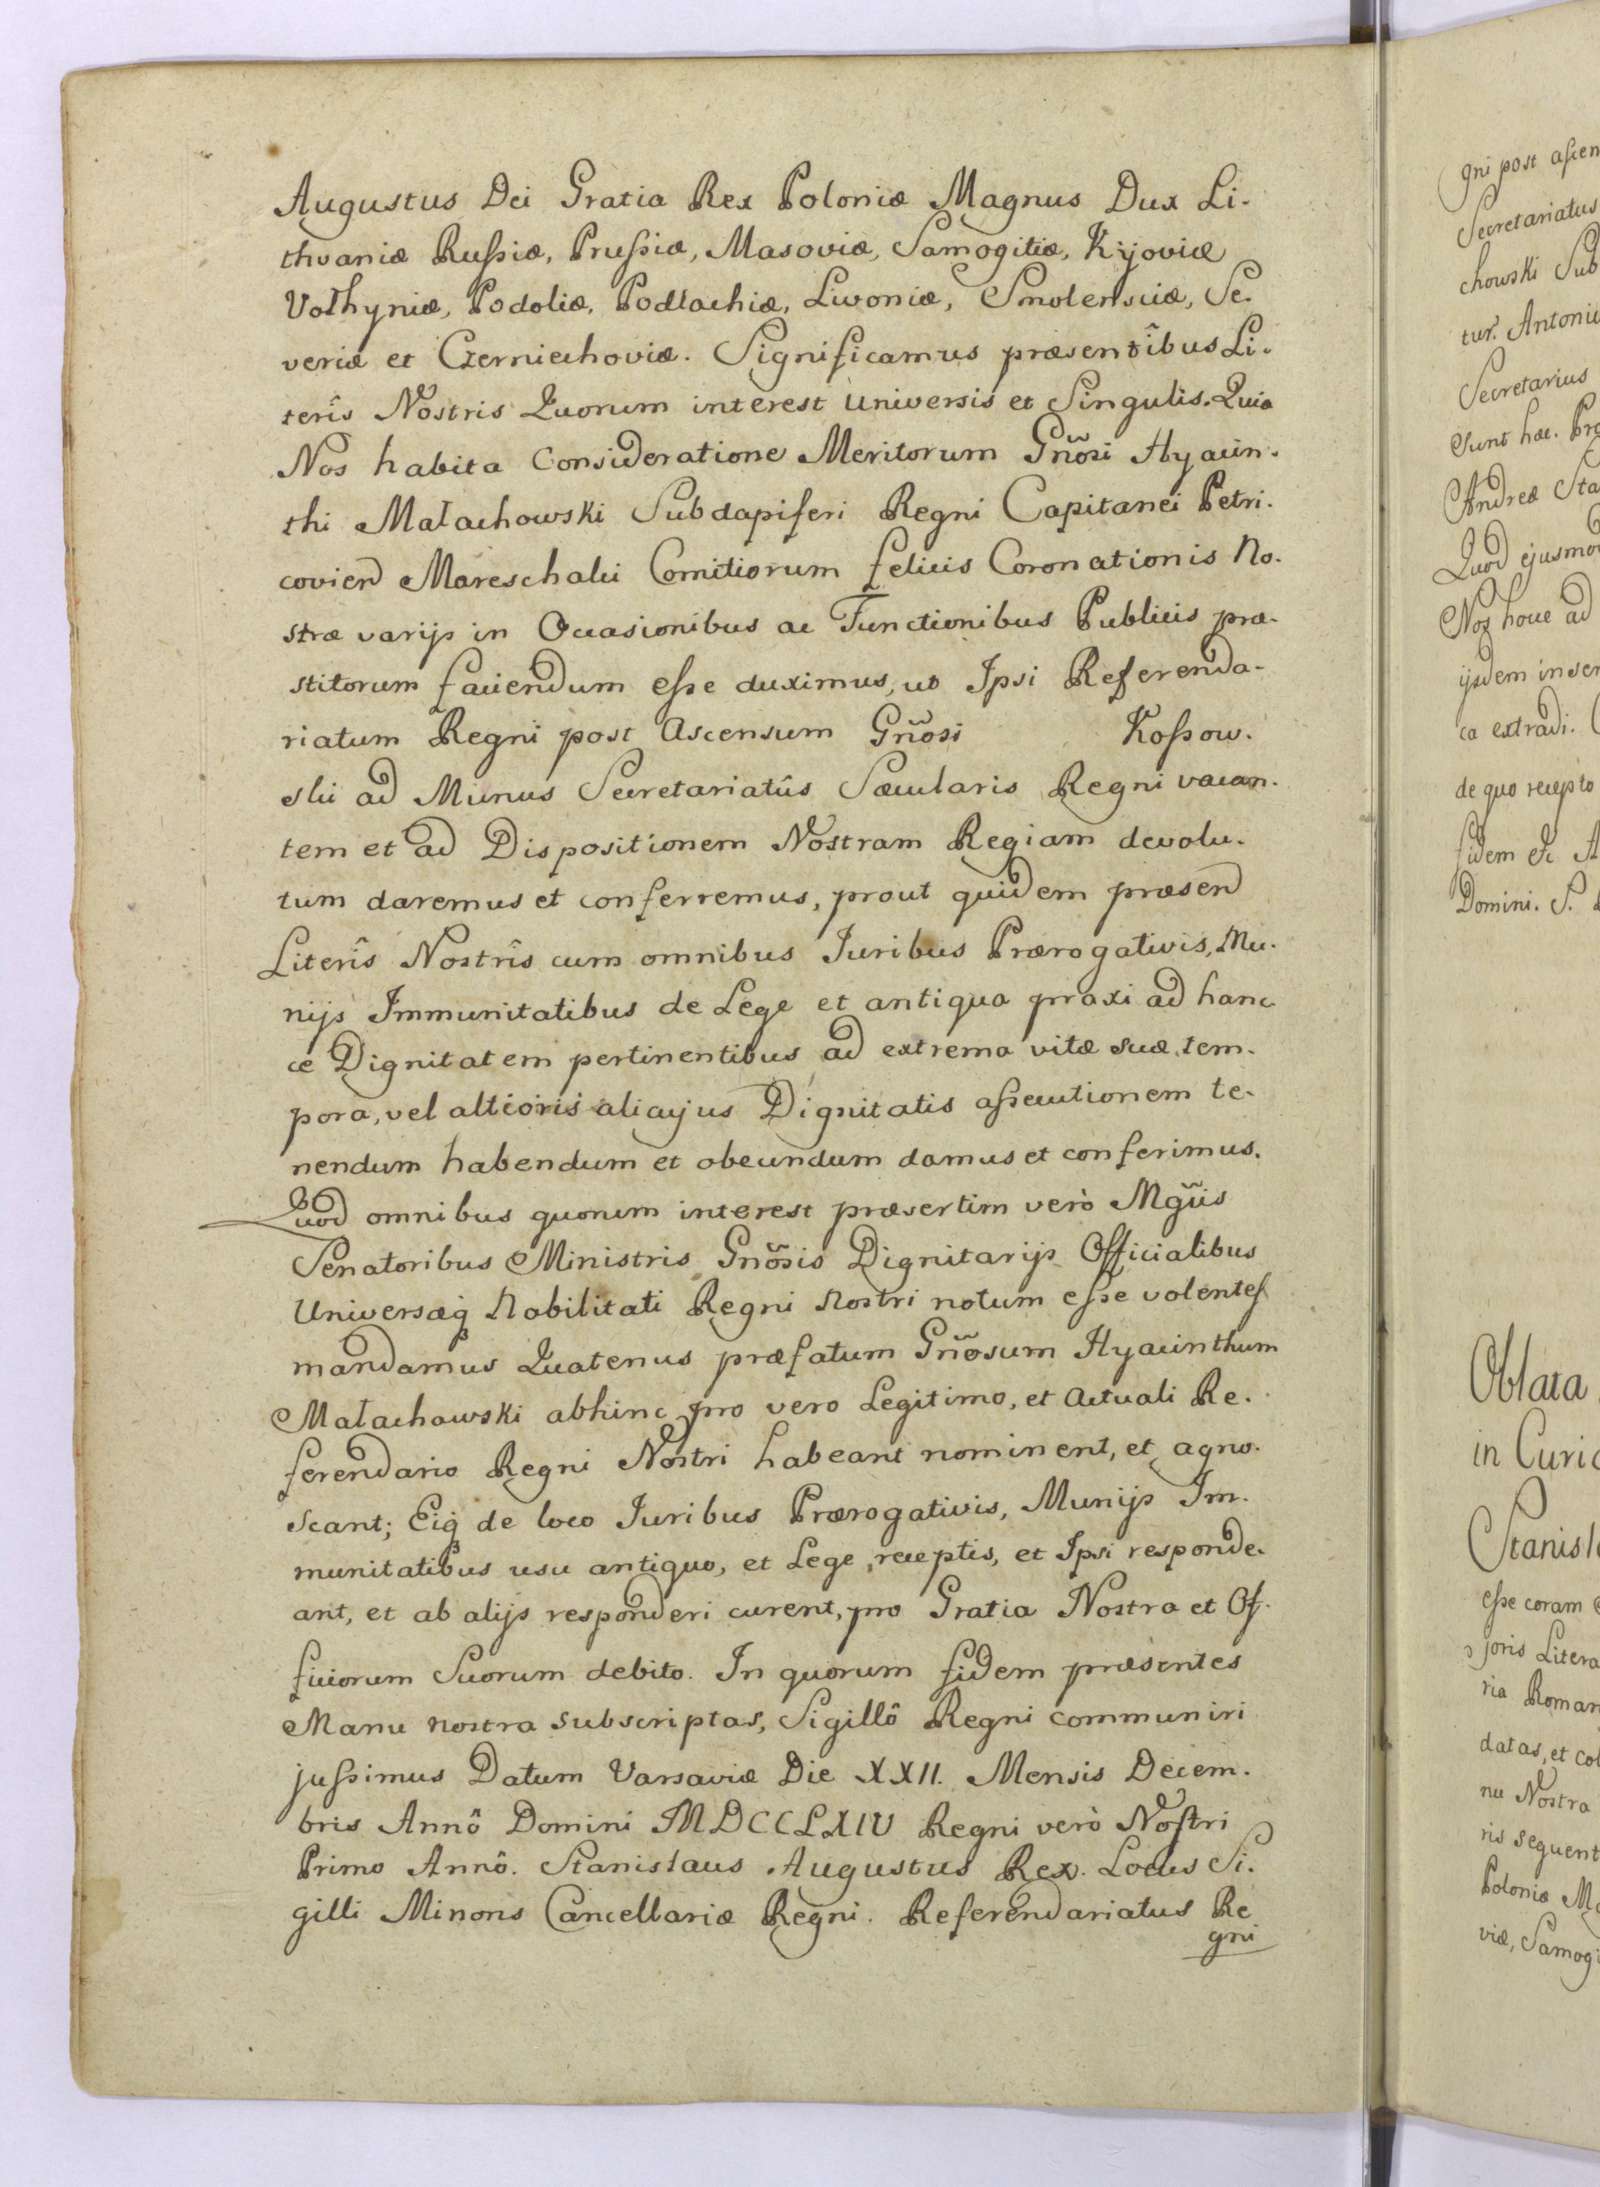 Augustus Dei Gratia Rex Poloniæ Magnus Dux Li-
thvaniæ Rußiæ, Prußiæ, Masoviæ, Samogitiæ, Kijoviæ
Volhyniæ, Podoliæ, Podlachiæ, Livoniæ, Smolensciæ, Se-
veriæ et Czerniechoviæ. Significamus præsentîbus Li-
terîs Nostris Quorum interest Universis et Singulis. Quia
Nos habita Consideratione Meritorum Gñosi Hyacin-
thi Małachowski Subdapiferi Regni Capitanei Petri-
covien Mareschalci Comitiorum felicis Coronationis No-
stræ varijs in Occasionibus ac Functionibus Publicis præ-
stitorum faciendum eße duximus, ut Ipsi Referenda-
riatum Regni post Ascensum Gñosi Koßow-
slci ad Munus Secretariatûs Sæcularis Regni vacan-
tem et ad Dispositionem Nostram Regiam devolu-
tum daremus et conferremus, prout quidem præsen
Literîs Nostrîs cum omnibus Juribus Prærogativis, Mu-
nijs Immunitatibus de Lege et antiqua praxi ad hanc
ce Dignitatem pertinentibus ad extrema vitæ suæ tem-
pora, vel altioris alicujus Dignitatis aßecutionem te-
nendum habendum et obeundum damus et conferimus.
Quod omnibus quorum interest præsertim verò Mgñis
Senatoribus Ministris Gñosis Dignitarijs Officialibus
Universæq Nobilitati Regni Nostri notum eße volentes
mandamus Quatenus præfatum Gñosum Hyacinthum
Małachowski abhinc pro vero Legitimo, et Actuali Re-
ferendario Regni Nostri habeant nominent, et agno-
scant; Eiq de loco Juribus Prærogativis, Munijs Im-
munitatibus usu antiquo, et Lege receptis, et Ipsi responde-
ant, et ab alijs responderi curent, pro Gratia Nostra et Of-
ficiorum Suorum debito. In quorum fidem præsentes
Manu nostra subscriptas, Sigillô Regni communiri
jußimus Datum Varsaviæ Die XXII. Mensis Decem-
bris Annô Domini MDCCLXIV Regni verò Nostri
Primo Annô. Stanislaus Augustus Rex. Locus Si-
gilli Minoris Cancellariæ Regni. Referendariatus Re
gni
gni post ascen
Secretariatus
chowski Sub
tur. Antoni
Secretarius
Sunt hæc. Pro
Andreæ Sta
Quod ejusmo
Nos hocce ad
ijsdem inser
ca extradi.
de quo recepto
fidem etc A
Domini. S.
Oblata
in Curia
Stanisl
eße coram
joris Litera
ria Roman
datas, et col
nu Nostra
ris sequent
Poloniæ Ma
viæ, Samogi